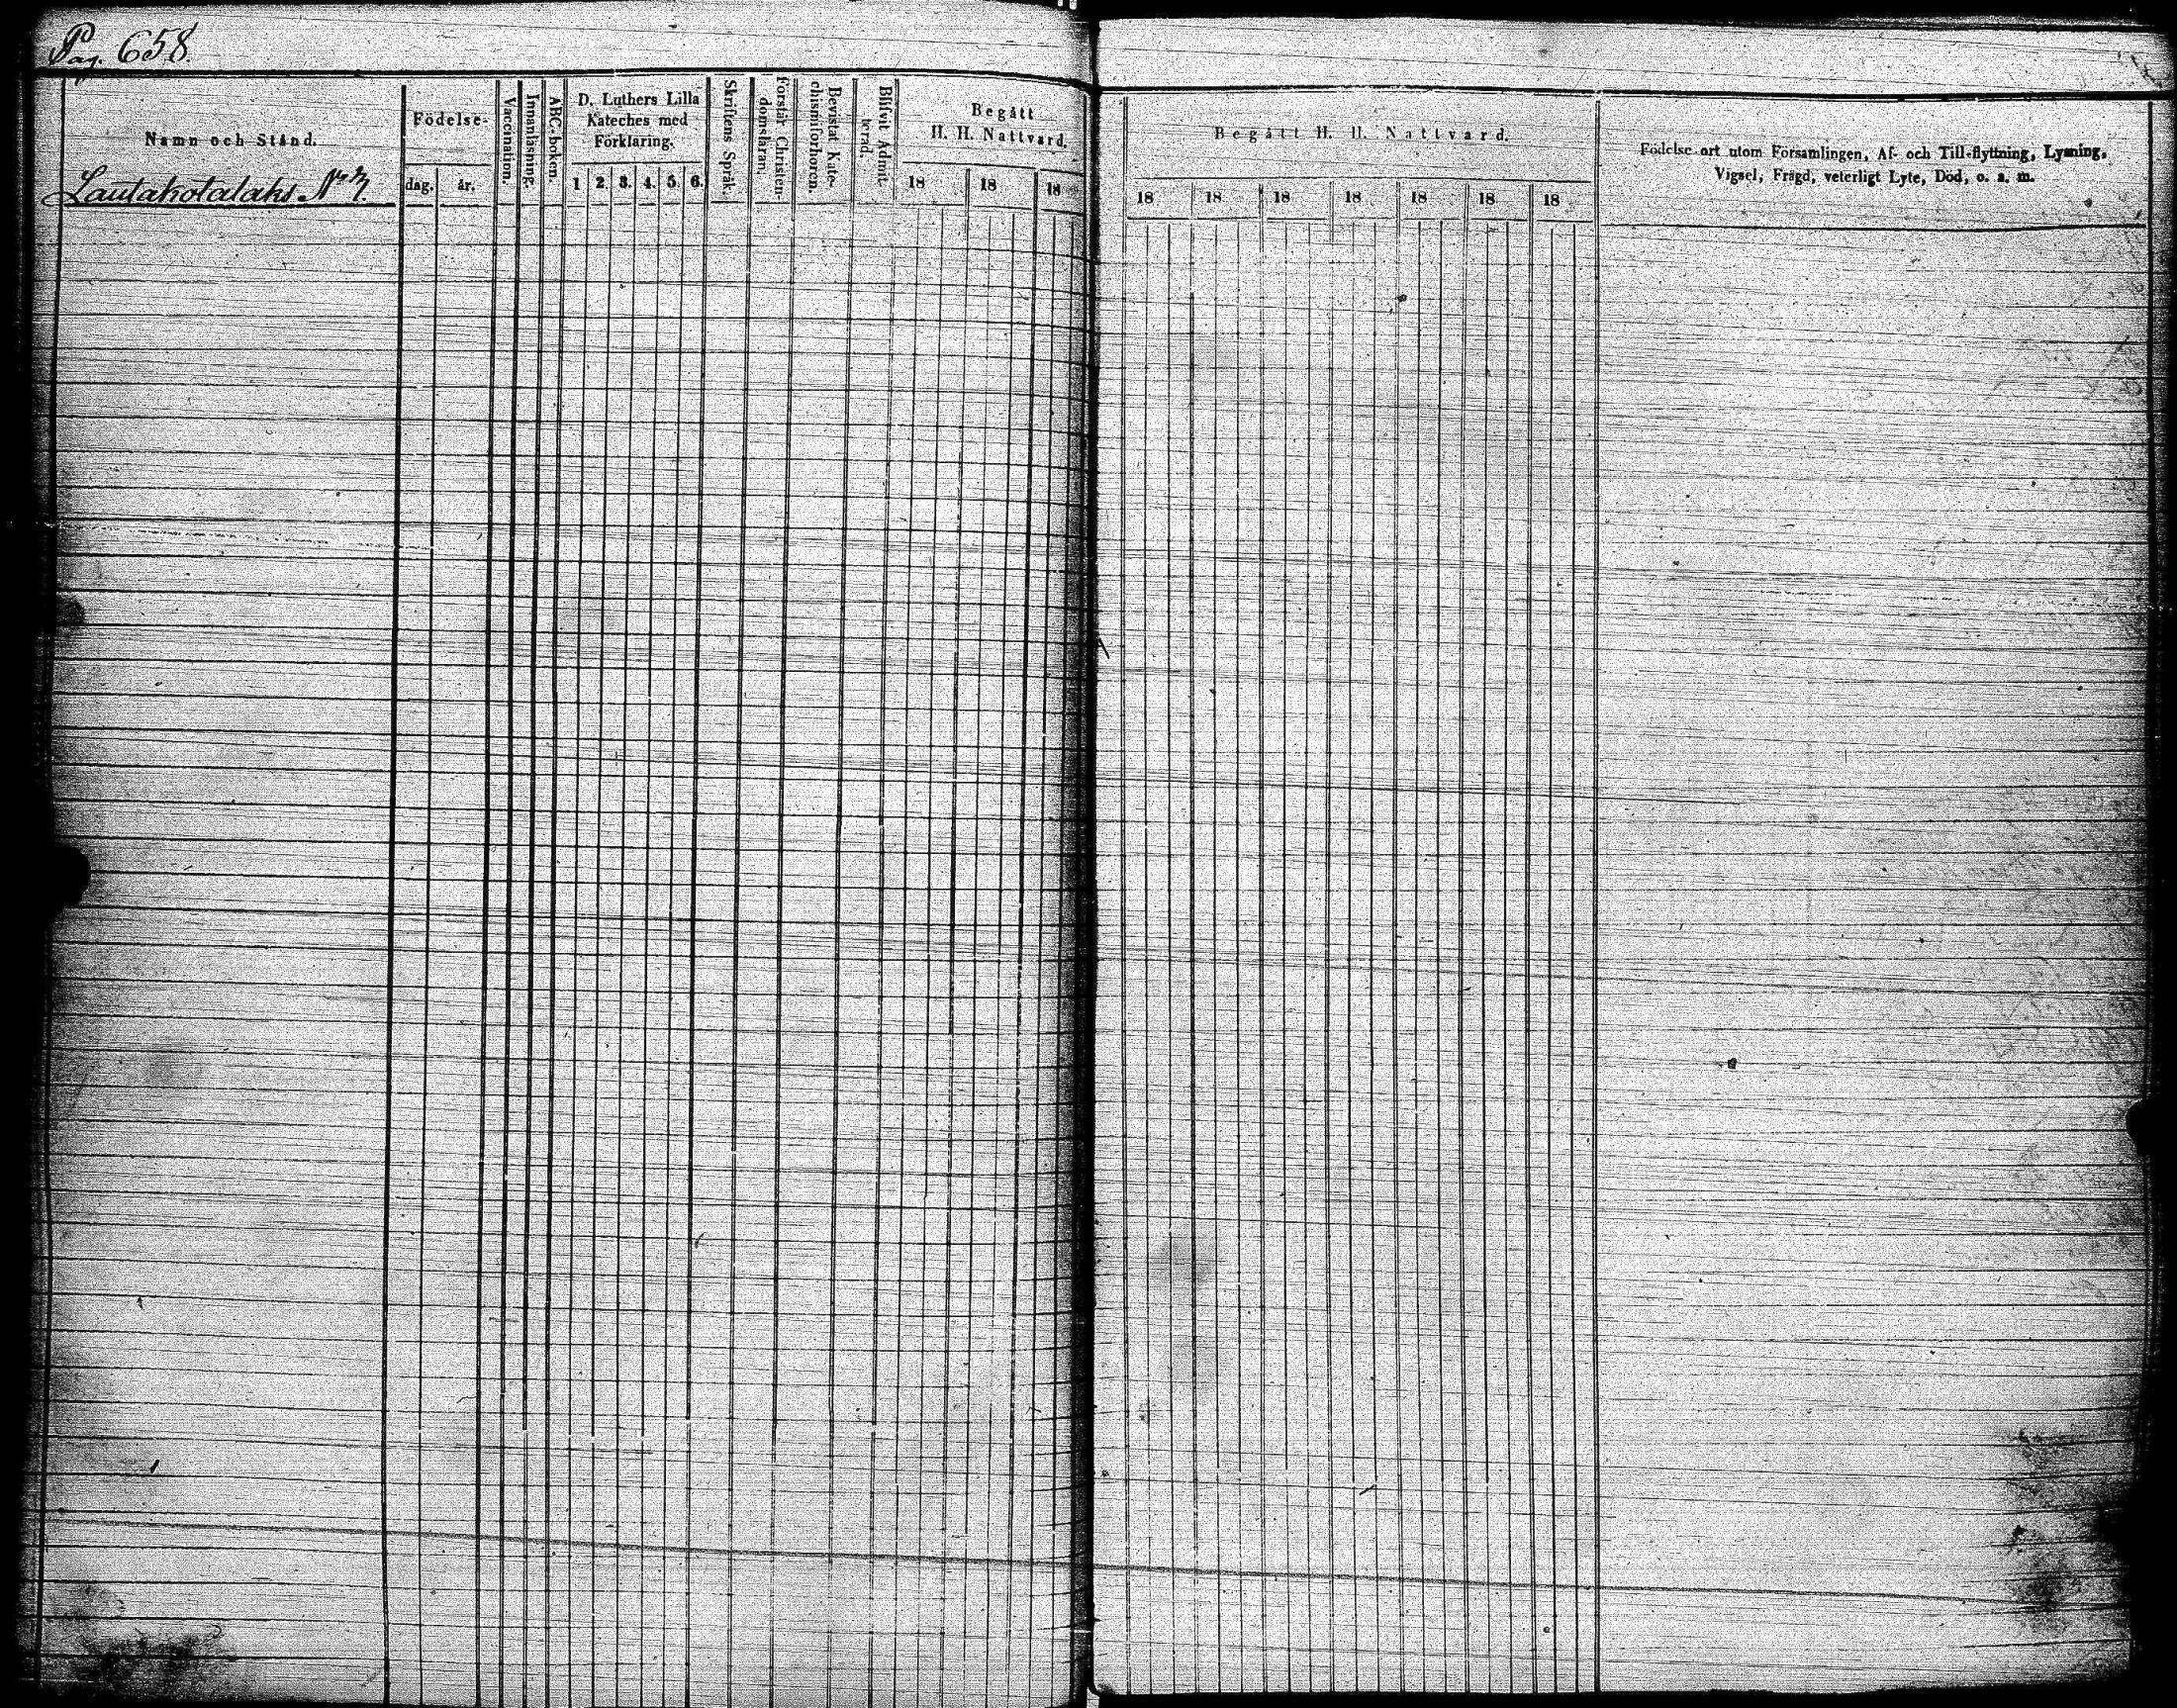 Pag. 658.
Namn och Stånd.
Lautakotalaks No 3.
Födelse-
dag.
år.
Vaccination.
Innanläsning.
ABC-boken.
D. Luthers Lilla
Kateches med
Förklaring.
1 2. 3. 4. 5. 6.
Skriftens Språk.
Förstår Christen-
domsläran.
Bevistat Kate-
chismiförhören.
Blifvit Admit-
terad.
Begått
H. H. Nattvard.
18 18 18
Begått H. H. Nattvard.
18 18 18 18 18 18 18
Födelse-ort utom Församlingen, Af- och Till-flyttning, Lysning,
Vigsel, Frägd, veterligt Lyte, Död, o. s. m.